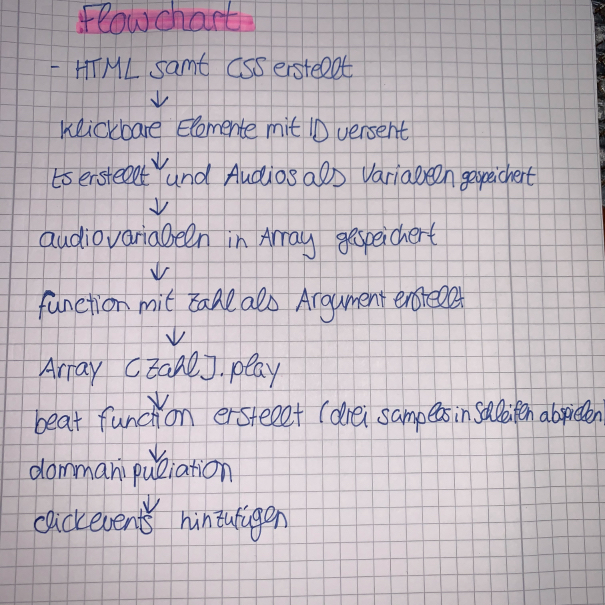 Flowchart
- HTML samt CSS erstellt
Klickbare Elemente mit ID versent
Ts erstellt und Audios als Variabeln gespeichert
audiovariabeln in Array gespeichert
function mit Zahl als Argument erstellt
Array [Zahl].play
beat function erstellt (drei samples in Schleifen abspielen)
dommanipuliation
clickevents hinzufügen